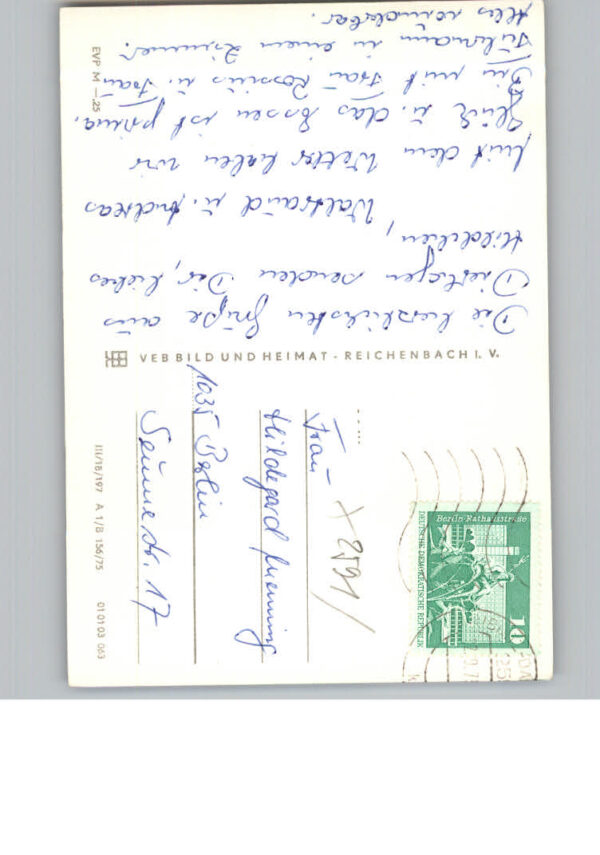 Die herzlichsten Grüße aus
Dierhagen senden Dir, liebes
Hildchen,
Waltraud u. Andreas
Mit dem Wetter haben wir
Glück u. das Essen ist prima.
Bin mit Frau Rossius u. Frau
in einem Zimmer.
Alles wunderbar.
EVP M –.25
VEB BILD UND HEIMAT · REICHENBACH I. V.
Frau
Hildegard
1035 Berlin
Seumestr. 17
X2591/
III/18/197 A 1/B 156/75 01 01 03 063
Berlin Rathausstraße
DEUTSCHE DEMOKRATISCHE REPUBLIK
10